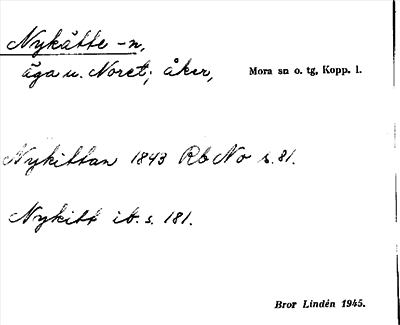 Nykätte -n,
äga u. Noret; åker,
Mora sn o. tg, Kopp. l.
Nykittan 1843 Rb No s. 81.
Nykitt ib. s. 181.
Bror Lindén 1945.